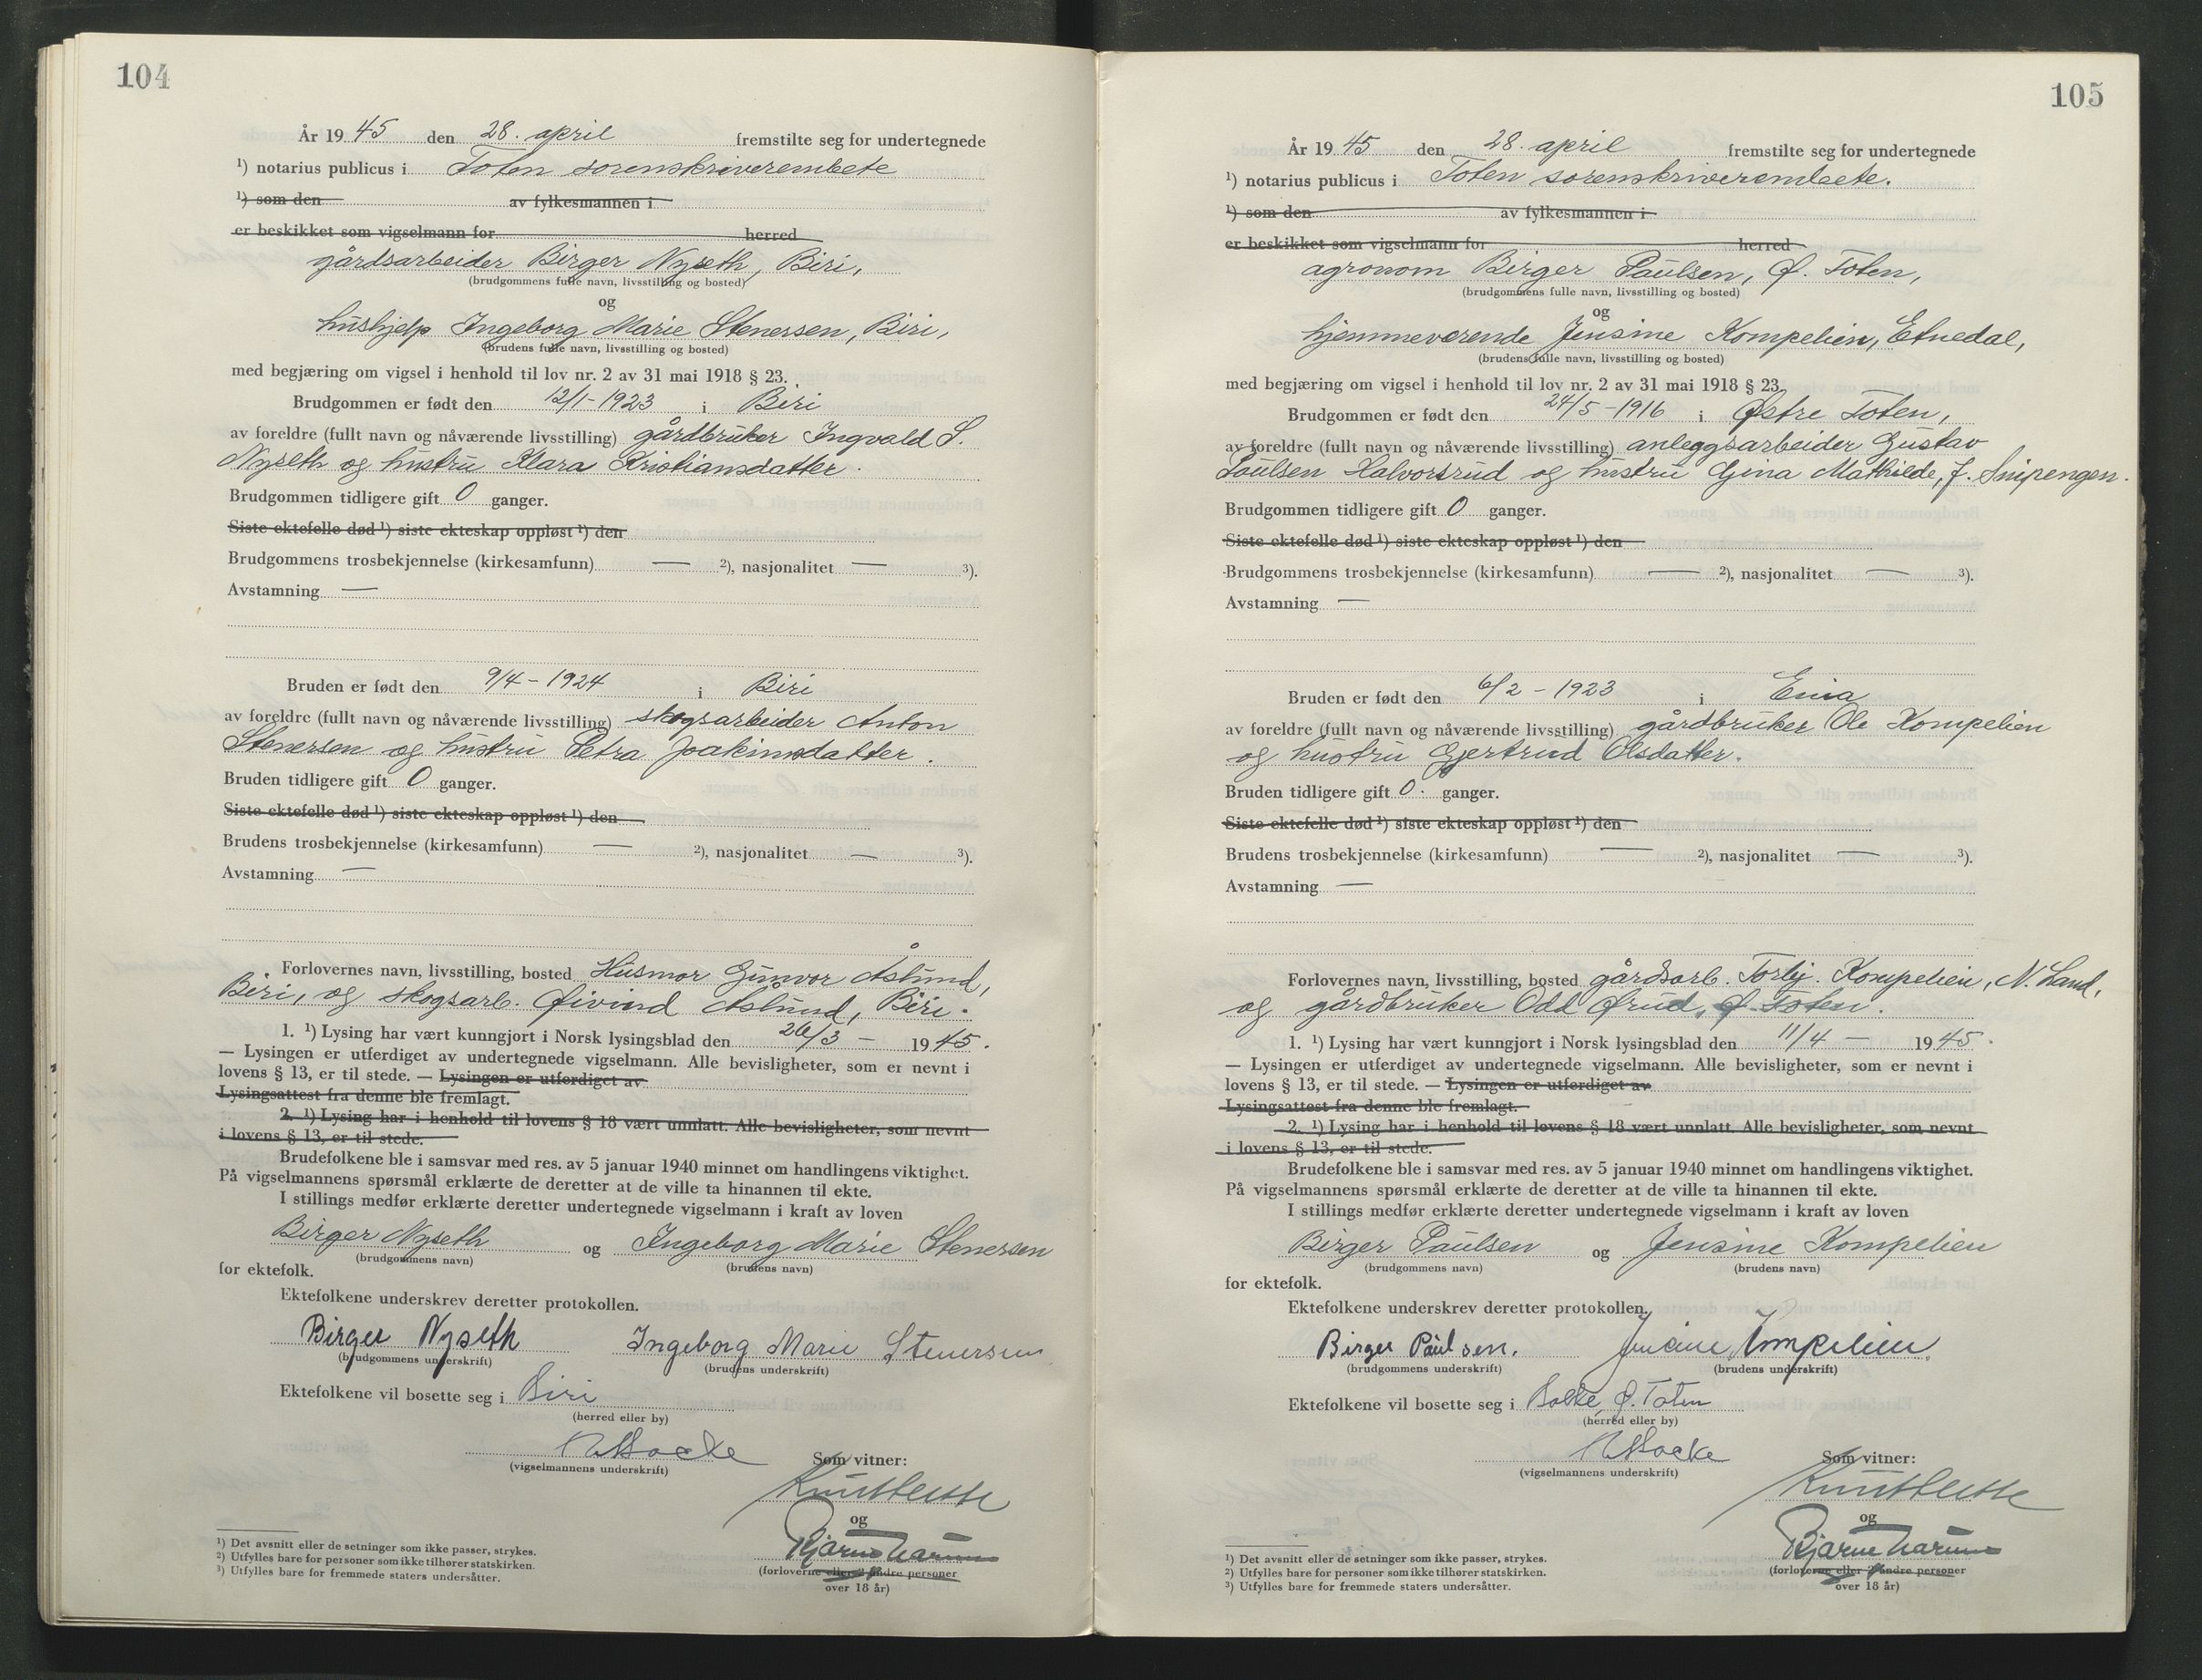 104
År 19 45 den 28. april fremstilte seg for undertegnede
¹) notarius publicus i Toten sorenskriverembete
¹) som den av fylkesmannen i
er beskikket som vigselmann for herred
gårdsarbeider Birger Nyseth, Biri,
(brudgommens fulle navn, livsstilling og bosted)
og
hushjelp Ingeborg Marie Stenersen, Biri,
(brudens fulle navn, livsstilling og bosted)
med begjæring om vigsel i henhold til lov nr. 2 av 31 mai 1918 § 23.
Brudgommen er født den 12/1-1923 i Biri
av foreldre (fullt navn og nåværende livsstilling) gårdbruker Ingvald S.
Nyseth og hustru Klara Kristiansdatter.
Brudgommen tidligere gift 0 ganger.
Siste ektefelle død ¹) siste ekteskap oppløst ¹) den
Brudgommens trosbekjennelse (kirkesamfunn) — ²), nasjonalitet — ³).
Avstamning —
Bruden er født den 9/4-1924 i Biri
av foreldre (fullt navn og nåværende livsstilling) skogsarbeider Anton
Stenersen og hustru Petra Joakimsdatter.
Bruden tidligere gift 0 ganger.
Siste ektefelle død ¹) siste ekteskap oppløst ¹) den
Brudens trosbekjennelse (kirkesamfunn) — ²), nasjonalitet — ³).
Avstamning —
Forlovernes navn, livsstilling, bosted Husmor Gunvor Åslund,
Biri, og skogsarb. Øivind Åslund, Biri.
1. ¹) Lysing har vært kunngjort i Norsk lysingsblad den 26/3 — 19 45.
— Lysingen er utferdiget av undertegnede vigselmann. Alle bevisligheter, som er nevnt i
lovens § 13, er til stede. — Lysingen er utferdiget av
Lysingsattest fra denne ble fremlagt.
2. ¹) Lysing har i henhold til lovens § 18 vært unnlatt. Alle bevisligheter, som nevnt
i lovens § 13, er til stede.
Brudefolkene ble i samsvar med res. av 5 januar 1940 minnet om handlingens viktighet.
På vigselmannens spørsmål erklærte de deretter at de ville ta hinannen til ekte.
I stillings medfør erklærte deretter undertegnede vigselmann i kraft av loven
Birger Nyseth og Ingeborg Marie Stenersen
(brudgommens navn) (brudens navn)
for ektefolk.
Ektefolkene underskrev deretter protokollen.
Birger Nyseth Ingeborg Marie Stenersen
(brudgommens underskrift) (brudens underskrift)
Ektefolkene vil bosette seg i Biri
(herred eller by)
(vigselmannens underskrift)
Som vitner:
og
Bjarne
(forloverne eller 2 andre personer
over 18 år)
¹) Det avsnitt eller de setninger som ikke passer, strykes.
²) Utfylles bare for personer som ikke tilhører statskirken.
³) Utfylles bare for fremmede staters undersåtter.
105
År 19 45 den 28. april fremstilte seg for undertegnede
¹) notarius publicus i Toten sorenskriverembete.
¹) som den av fylkesmannen i
er beskikket som vigselmann for herred
agronom Birger Paulsen, Ø. Toten,
(brudgommens fulle navn, livsstilling og bosted)
og
hjemmeværende Jensine Kompelien, Etnedal,
(brudens fulle navn, livsstilling og bosted)
med begjæring om vigsel i henhold til lov nr. 2 av 31 mai 1918 § 23.
Brudgommen er født den 24/5-1916 i Østre Toten,
av foreldre (fullt navn og nåværende livsstilling) anleggsarbeider Gustav
Paulsen Halvorsrud og hustru Gina Mathilde, f. Snipengen.
Brudgommen tidligere gift 0 ganger.
Siste ektefelle død ¹) siste ekteskap oppløst ¹) den
Brudgommens trosbekjennelse (kirkesamfunn) — ²), nasjonalitet — ³).
Avstamning —
Bruden er født den 6/2-1923 i Eina
av foreldre (fullt navn og nåværende livsstilling) gårdbruker Ole Kompelien
og hustru Gjertrud Olsdatter.
Bruden tidligere gift 0. ganger.
Siste ektefelle død ¹) siste ekteskap oppløst ¹) den
Brudens trosbekjennelse (kirkesamfunn) — ²), nasjonalitet — ³).
Avstamning —
Forlovernes navn, livsstilling, bosted gårdsarb. Torbj. Kompelien, N. Land,
og gårdbruker Odd Ørud, Ø. Toten.
1. ¹) Lysing har vært kunngjort i Norsk lysingsblad den 11/4 — 19 45.
— Lysingen er utferdiget av undertegnede vigselmann. Alle bevisligheter, som er nevnt i
lovens § 13, er til stede. — Lysingen er utferdiget av
Lysingsattest fra denne ble fremlagt.
2. ¹) Lysing har i henhold til lovens § 18 vært unnlatt. Alle bevisligheter, som nevnt
i lovens § 13, er til stede.
Brudefolkene ble i samsvar med res. av 5 januar 1940 minnet om handlingens viktighet.
På vigselmannens spørsmål erklærte de deretter at de ville ta hinannen til ekte.
I stillings medfør erklærte deretter undertegnede vigselmann i kraft av loven
Birger Paulsen og Jensine Kompelien
(brudgommens navn) (brudens navn)
for ektefolk.
Ektefolkene underskrev deretter protokollen.
Birger Paulsen. Jensine Kompelien
(brudgommens underskrift) (brudens underskrift)
Ektefolkene vil bosette seg i Ø. Toten
(herred eller by)
(vigselmannens underskrift)
Som vitner:
og
Bjarne
(forloverne eller 2 andre personer
over 18 år)
¹) Det avsnitt eller de setninger som ikke passer, strykes.
²) Utfylles bare for personer som ikke tilhører statskirken.
³) Utfylles bare for fremmede staters undersåtter.